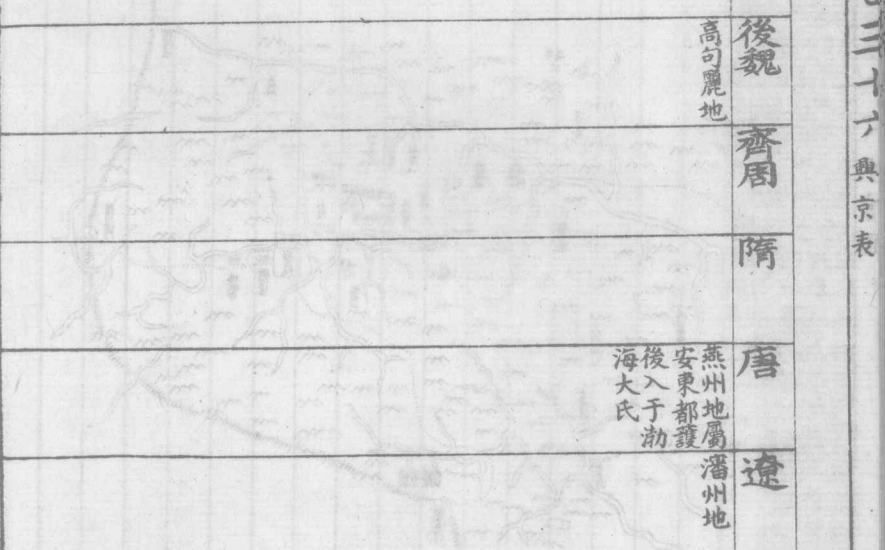 三十六 興京表
後魏
高句麗地
齊周
隋
唐
燕州地屬
安東都護
後入于渤
海大氏
遼
瀋州地